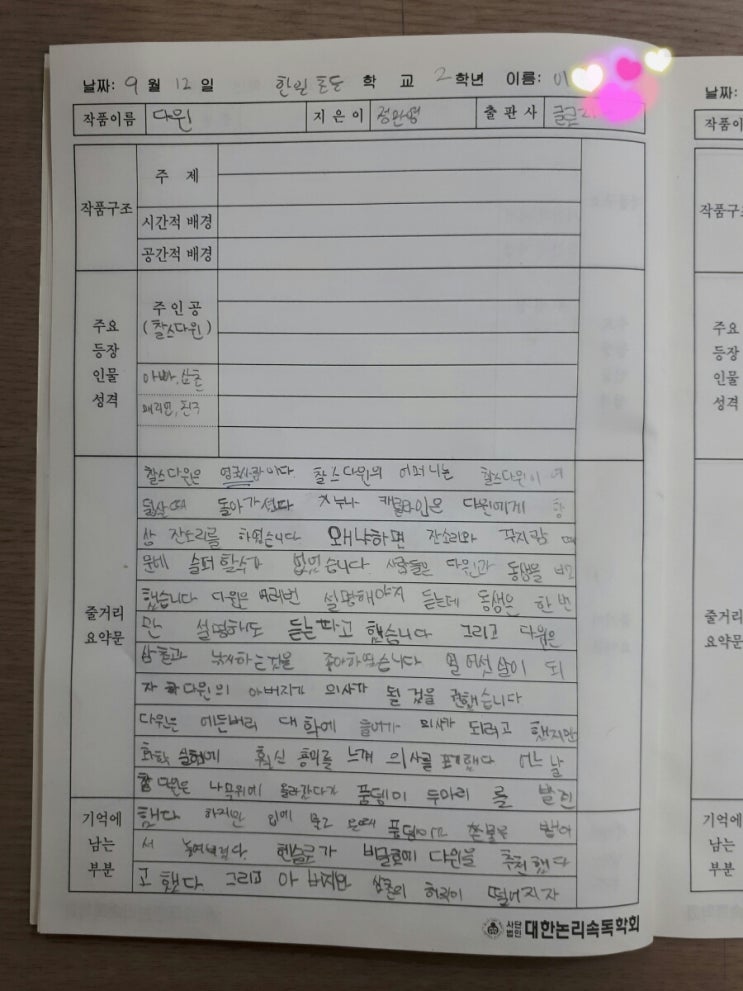 날짜: 9 월 12 일 한일초등 학 교 2 학년 이름: 이
작품이름 다윈 지은이 출판사
작품구조 주 제
시간적 배경
공간적 배경
주요 등장 인물 성격
주인공 (찰스다윈)
아빠, 삼촌
친구
줄거리 요약문
찰스다윈은 영국사람이다. 찰스다윈의 어머니는 찰스다윈이 여
덟살때 돌아가셨다 누나 캐롤라인은 다윈에게 항
상 잔소리를 하였습니다 왜냐하면 잔소리와 꾸지람 때
문에 슬퍼할수가 없었습니다. 사람들은 다윈과 동생을 비교
했습니다 다윈은 여러번 설명해야지 듣는데 동생은 한번
만 설명해도 듣는다고 했습니다 그리고 다윈은
삼촌과 낚시하는것을 좋아하였습니다 열여섯살이 되
자 다윈의 아버지가 의사가 될 것을 권했습니다
다윈은 에든버러 대학에 들어가 의사가 되려고 했지만
화학 실험에 훨씬 흥미를 느껴 의사를 포기했다 어느 날
다윈은 나무위에 올라간다가 풍뎅이 두마리 를 발견
기억에 남는 부분
했다 하지만 입에 물고 풍뎅이가 뱉어
서 헨슬로가 비글호에 다윈을 추천했다
고 했다 그리고 아버지와 삼촌의 허락이 떨어지자
사단법인 대한논리속독학회
날짜:
작품이
작품구조
주요 등장 인물 성격
줄거리 요약문
기억에 남는 부분